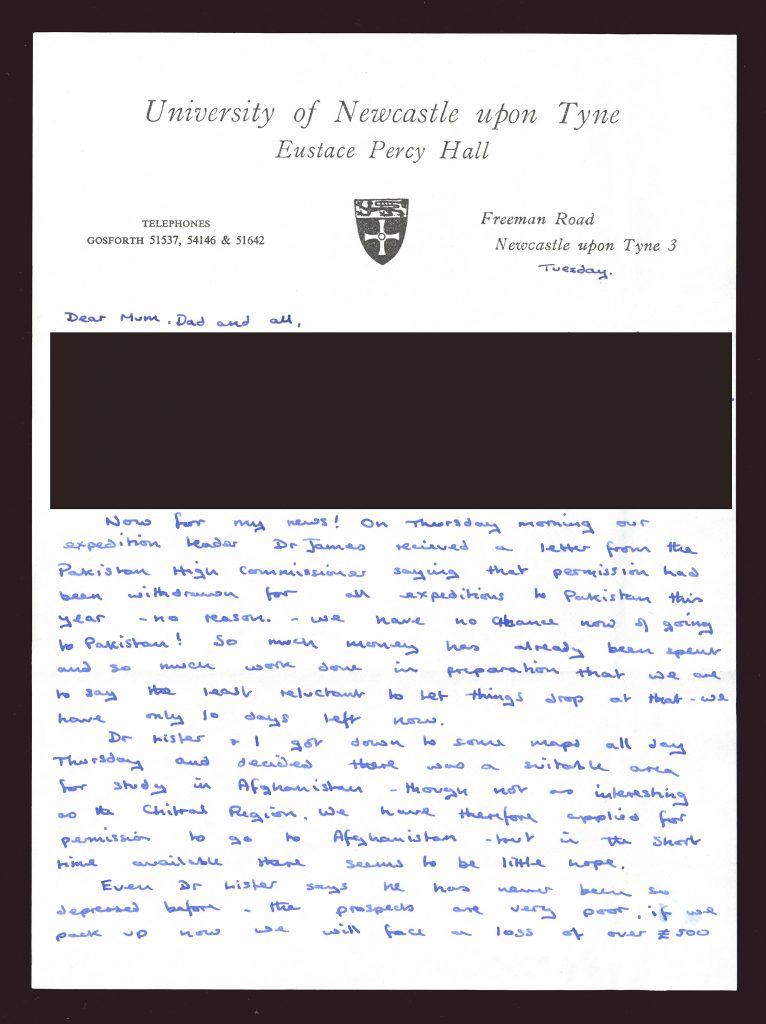 University of Newcastle upon Tyne
Eustace Percy Hall
TELEPHONES
GOSFORTH 51537, 54146 & 51642
Freeman Road
Newcastle upon Tyne 3
Tuesday.
Dear Mum, Dad and all,
Now for my news! On Thursday morning our
expedition leader Dr James recieved a letter from the
Pakistan High Commissioner saying that permission had
been withdrawn for all expeditions to Pakistan this
year - no reason. - we have no chance now of going
to Pakistan! So much money has already been spent
and so much work done in preparation that we are
to say the least reluctant to let things drop at that - we
have only 10 days left now.
Dr Lister & I got down to some maps all day
Thursday and decided there was a suitable area
for study in Afghanistan - though not as interesting
as the Chitral Region. We have therefore applied for
permission to go to Afghanistan - but in the short
time available there seems to be little hope.
Even Dr Lister says he has never been so
depressed before - the prospects are very poor, if we
pack up now we will face a loss of over £500